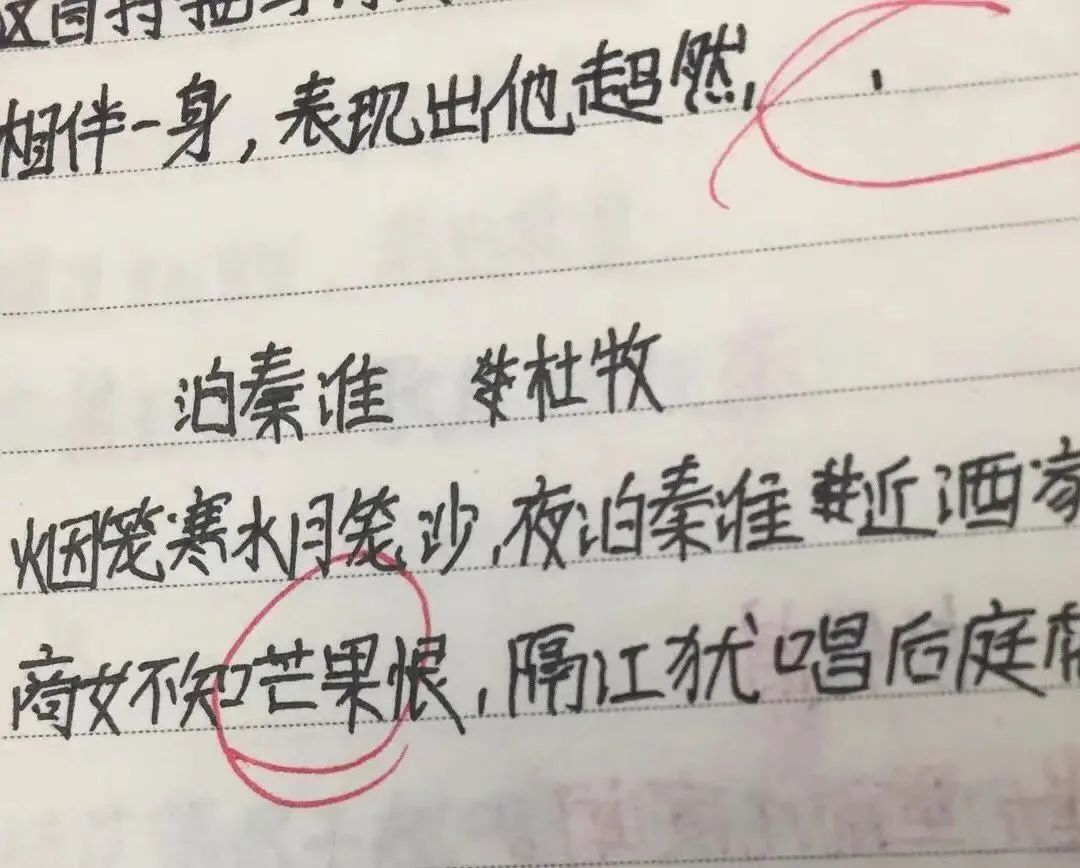 这首诗把
相伴一身,表现出他超然,
泊秦淮 杜牧
烟笼寒水月笼沙,夜泊秦淮近酒家
商女不知芒果恨,隔江犹唱后庭